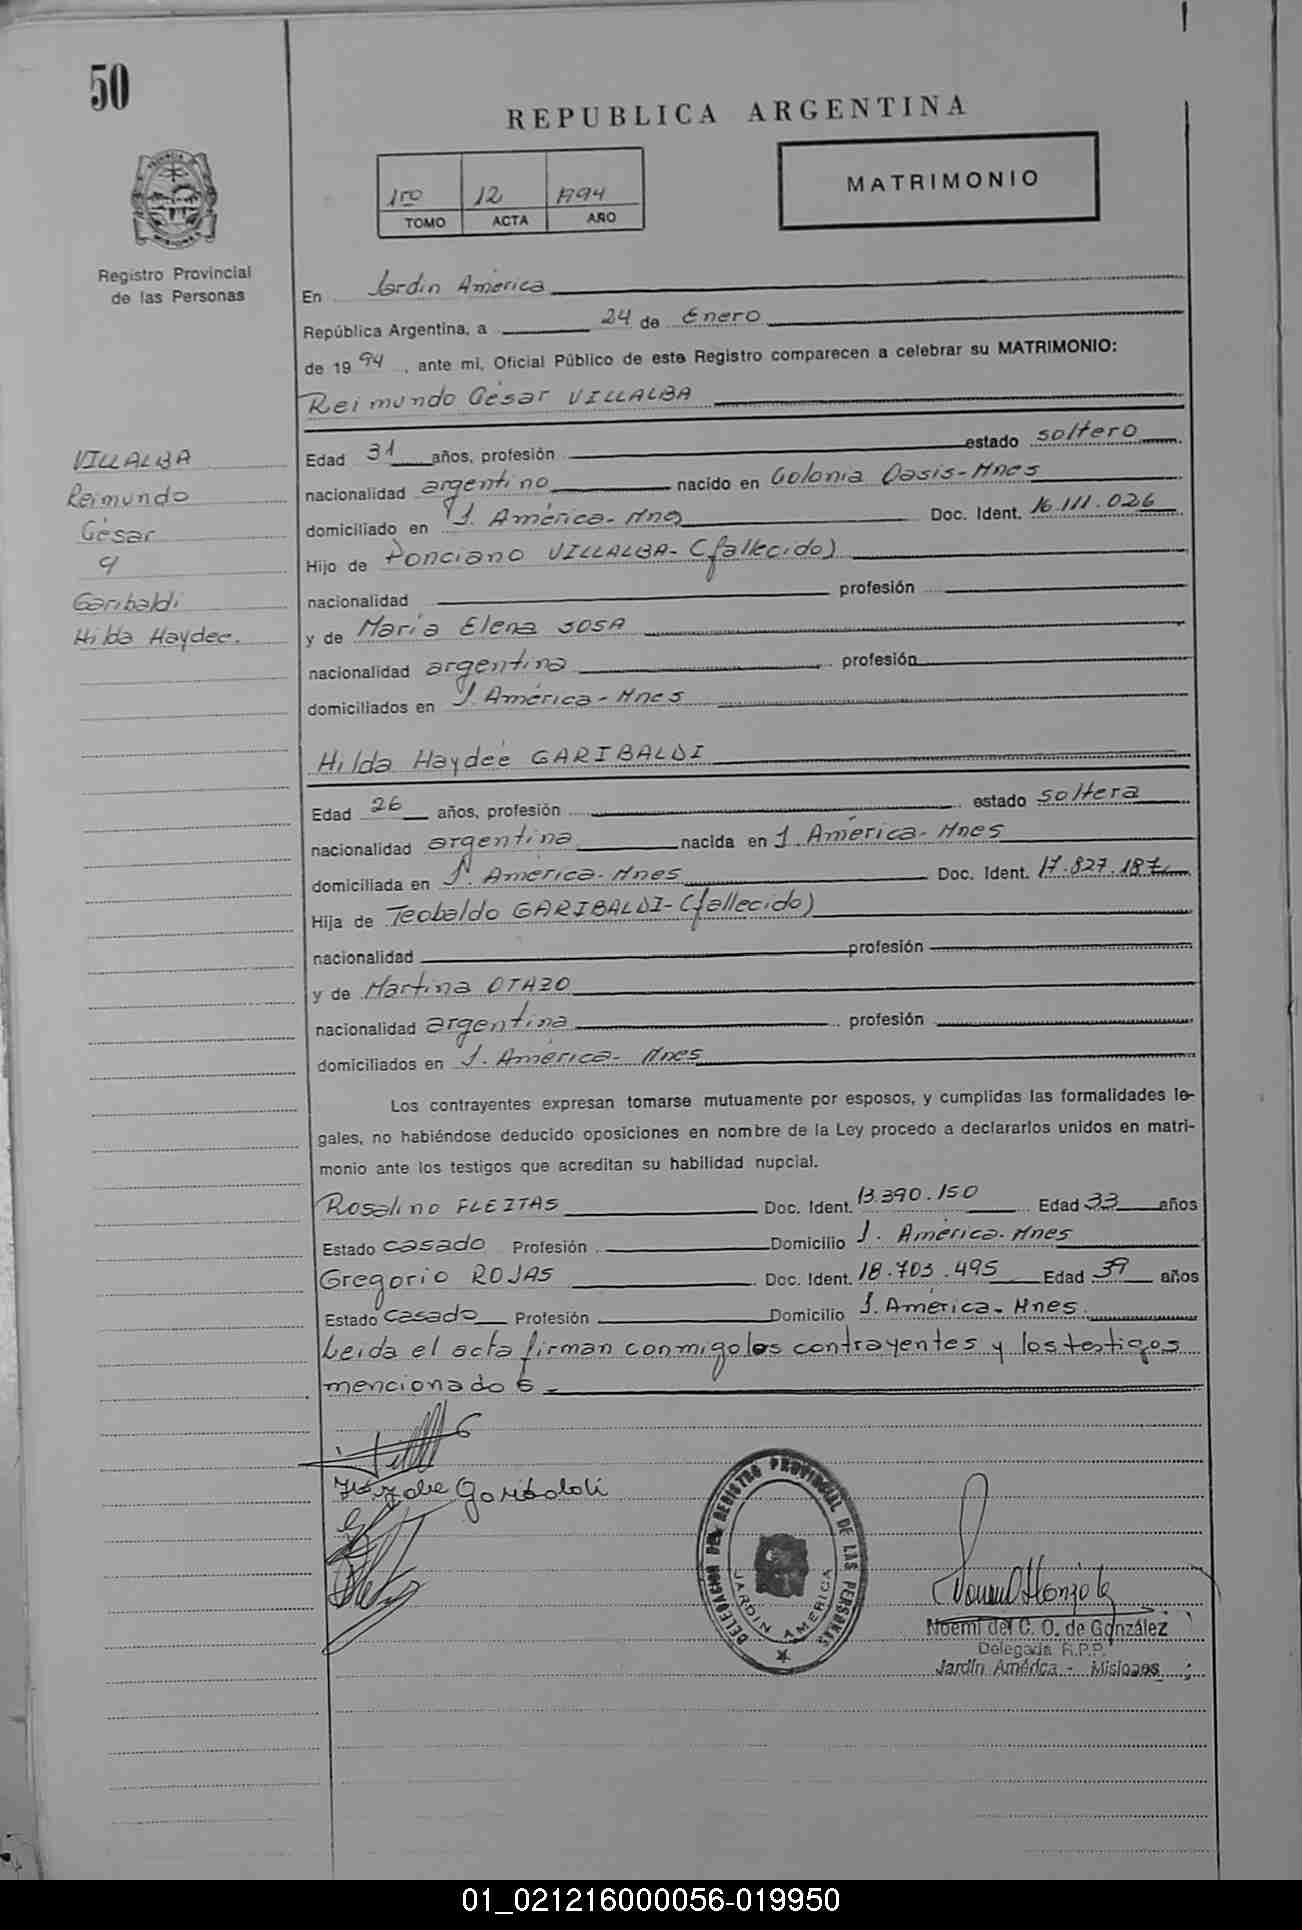 50
REPUBLICA ARGENTINA
1ro 12 1994
TOMO ACTA AÑO
MATRIMONIO
PROVINCIA
MISIONES
Registro Provincial
de las Personas
En Jardín América
República Argentina, a 24 de Enero
de 1994, ante mi, Oficial Público de este Registro comparecen a celebrar su MATRIMONIO:
Reimundo César VILLALBA
VILLALBA
Reimundo
César
y
Garibaldi
Hilda Haydee.
Edad 31 años, profesión estado soltero
nacionalidad argentino nacido en Colonia Oasis-Mnes
domiciliado en J. América-Mnes Doc. Ident. 16.111.026
Hijo de Ponciano VILLALBA-(fallecido)
nacionalidad profesión
y de María Elena SOSA
nacionalidad argentina profesión
domiciliados en J. América-Mnes
Hilda Haydeé GARIBALDI
Edad 26 años, profesión estado soltera
nacionalidad argentina nacida en J. América-Mnes
domiciliada en J. América-Mnes Doc. Ident. 17.827.187
Hija de Teobaldo GARIBALDI-(fallecido)
nacionalidad profesión
y de Martina OTAZO
nacionalidad argentina profesión
domiciliados en J. América- Mnes
Los contrayentes expresan tomarse mutuamente por esposos, y cumplidas las formalidades le-
gales, no habiéndose deducido oposiciones en nombre de la Ley procedo a declararlos unidos en matri-
monio ante los testigos que acreditan su habilidad nupcial.
Rosalino FLEITAS Doc. Ident. 13.390.150 Edad 33 años
Estado casado Profesión Domicilio J. América-Mnes
Gregorio ROJAS Doc. Ident. 18.703.495 Edad 39 años
Estado casado Profesión Domicilio J. América-Mnes
Leida el acta firman conmigo los contrayentes y los testigos
mencionados.-
Garibaldi
DELEGACION DEL REGISTRO PROVINCIAL DE LAS PERSONAS
JARDIN AMERICA
Noemí del C. O. de González
Delegada R.P.P.
Jardín América - Misiones
01_021216000056-019950